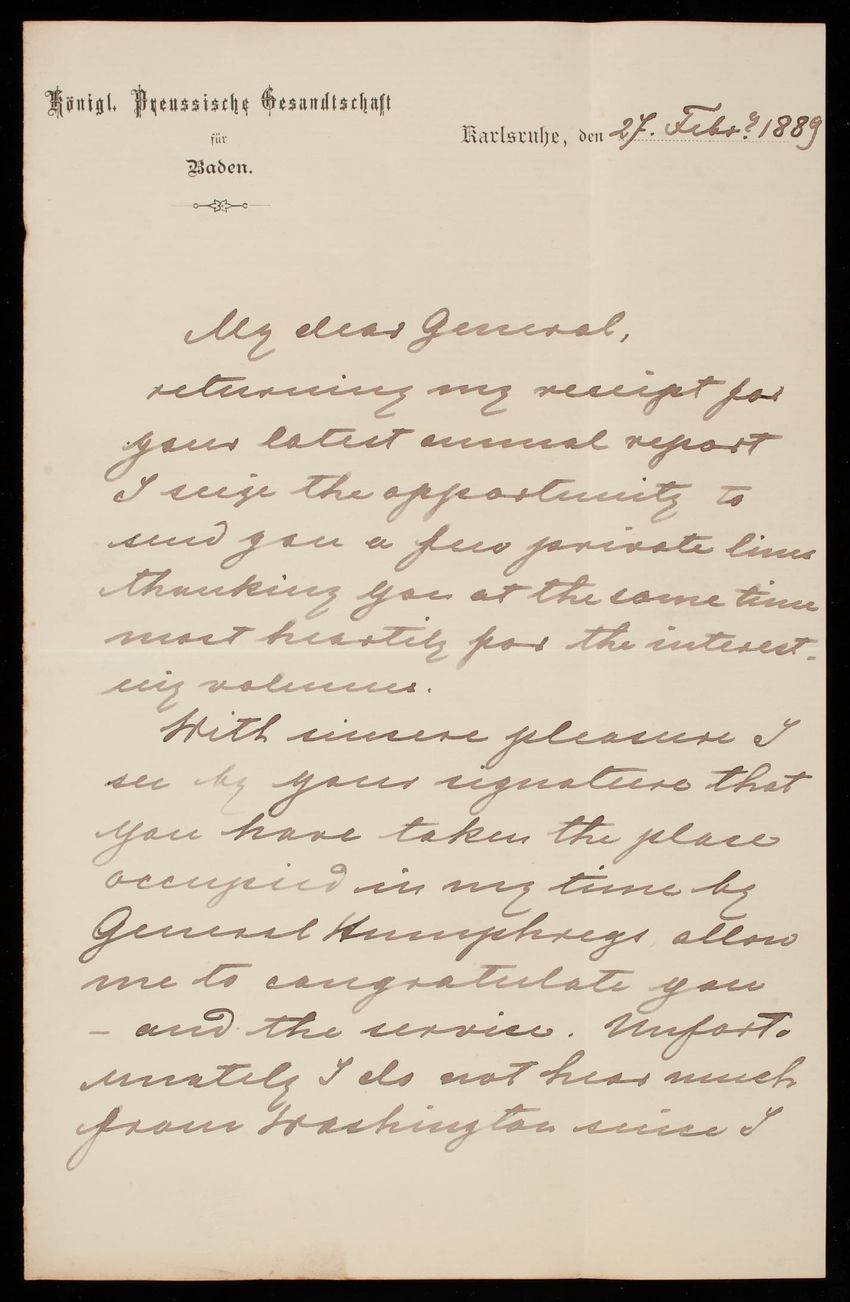 Königl. Preussische Gesandtschaft
für
Baden.
Karlsruhe, den 27. Febr. 1889
My dear General,
returning my receipt for
your latest annual report
I seize the opportunity to
send you a few private lines
thanking you at the same time
most heartily for the interest-
ing volumes.
With sincere pleasure I
see by your signature that
you have taken the place
occupied in my time by
General Humphreys, allow
me to congratulate you
- and the service. Unfort-
unately I do not hear much
from Washington since I